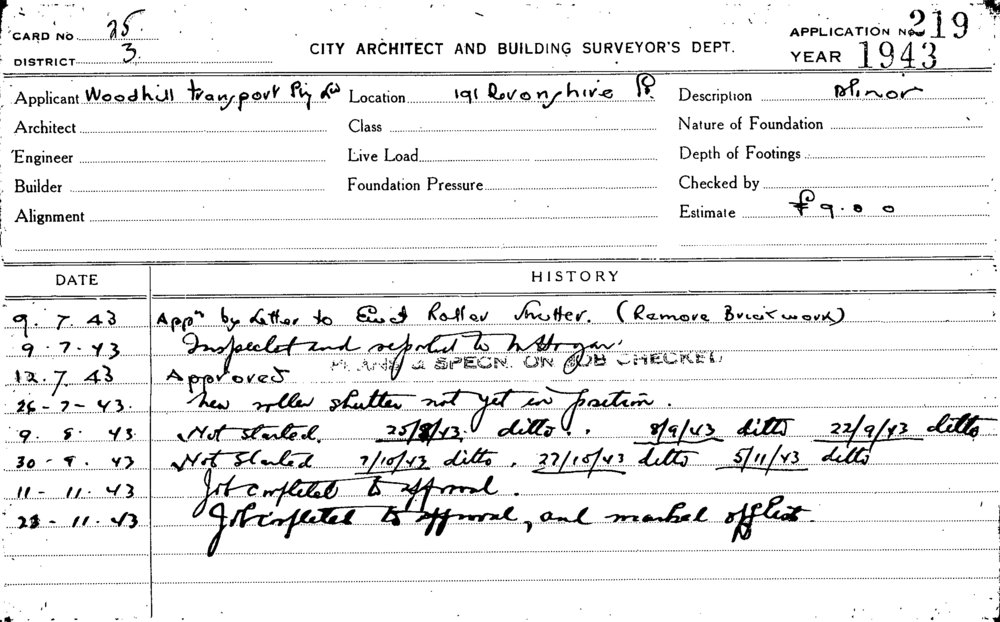 CARD No 25.
DISTRICT 3
CITY ARCHITECT AND BUILDING SURVEYOR'S DEPT.
APPLICATION No 219
YEAR 1943
Applicant Woodhill Transport Pty Ltd Location 191 Devonshire St. Description Minor
Architect Class Nature of Foundation
Engineer Live Load Depth of Footings
Builder Foundation Pressure Checked by
Alignment Estimate £9.0.0
DATE HISTORY
9.7.43 Appn by Letter to Erect Roller Shutter. (Remove Brickwork)
9.7.43 Inspected and reported to Mr Hogan.
PLANS & SPECN. ON JOB CHECKED
12.7.43 Approved
26-7-43. New roller shutter not yet in position.
9.8.43 Not started. 25/8/43 ditto. 8/9/43 ditto 22/9/43 ditto
30-9.43 Not Started 7/10/43 ditto. 27/10/43 ditto 5/11/43 ditto
11-11.43 Job completed to approval.
23-11.43 Job completed to approval, and marked off list.